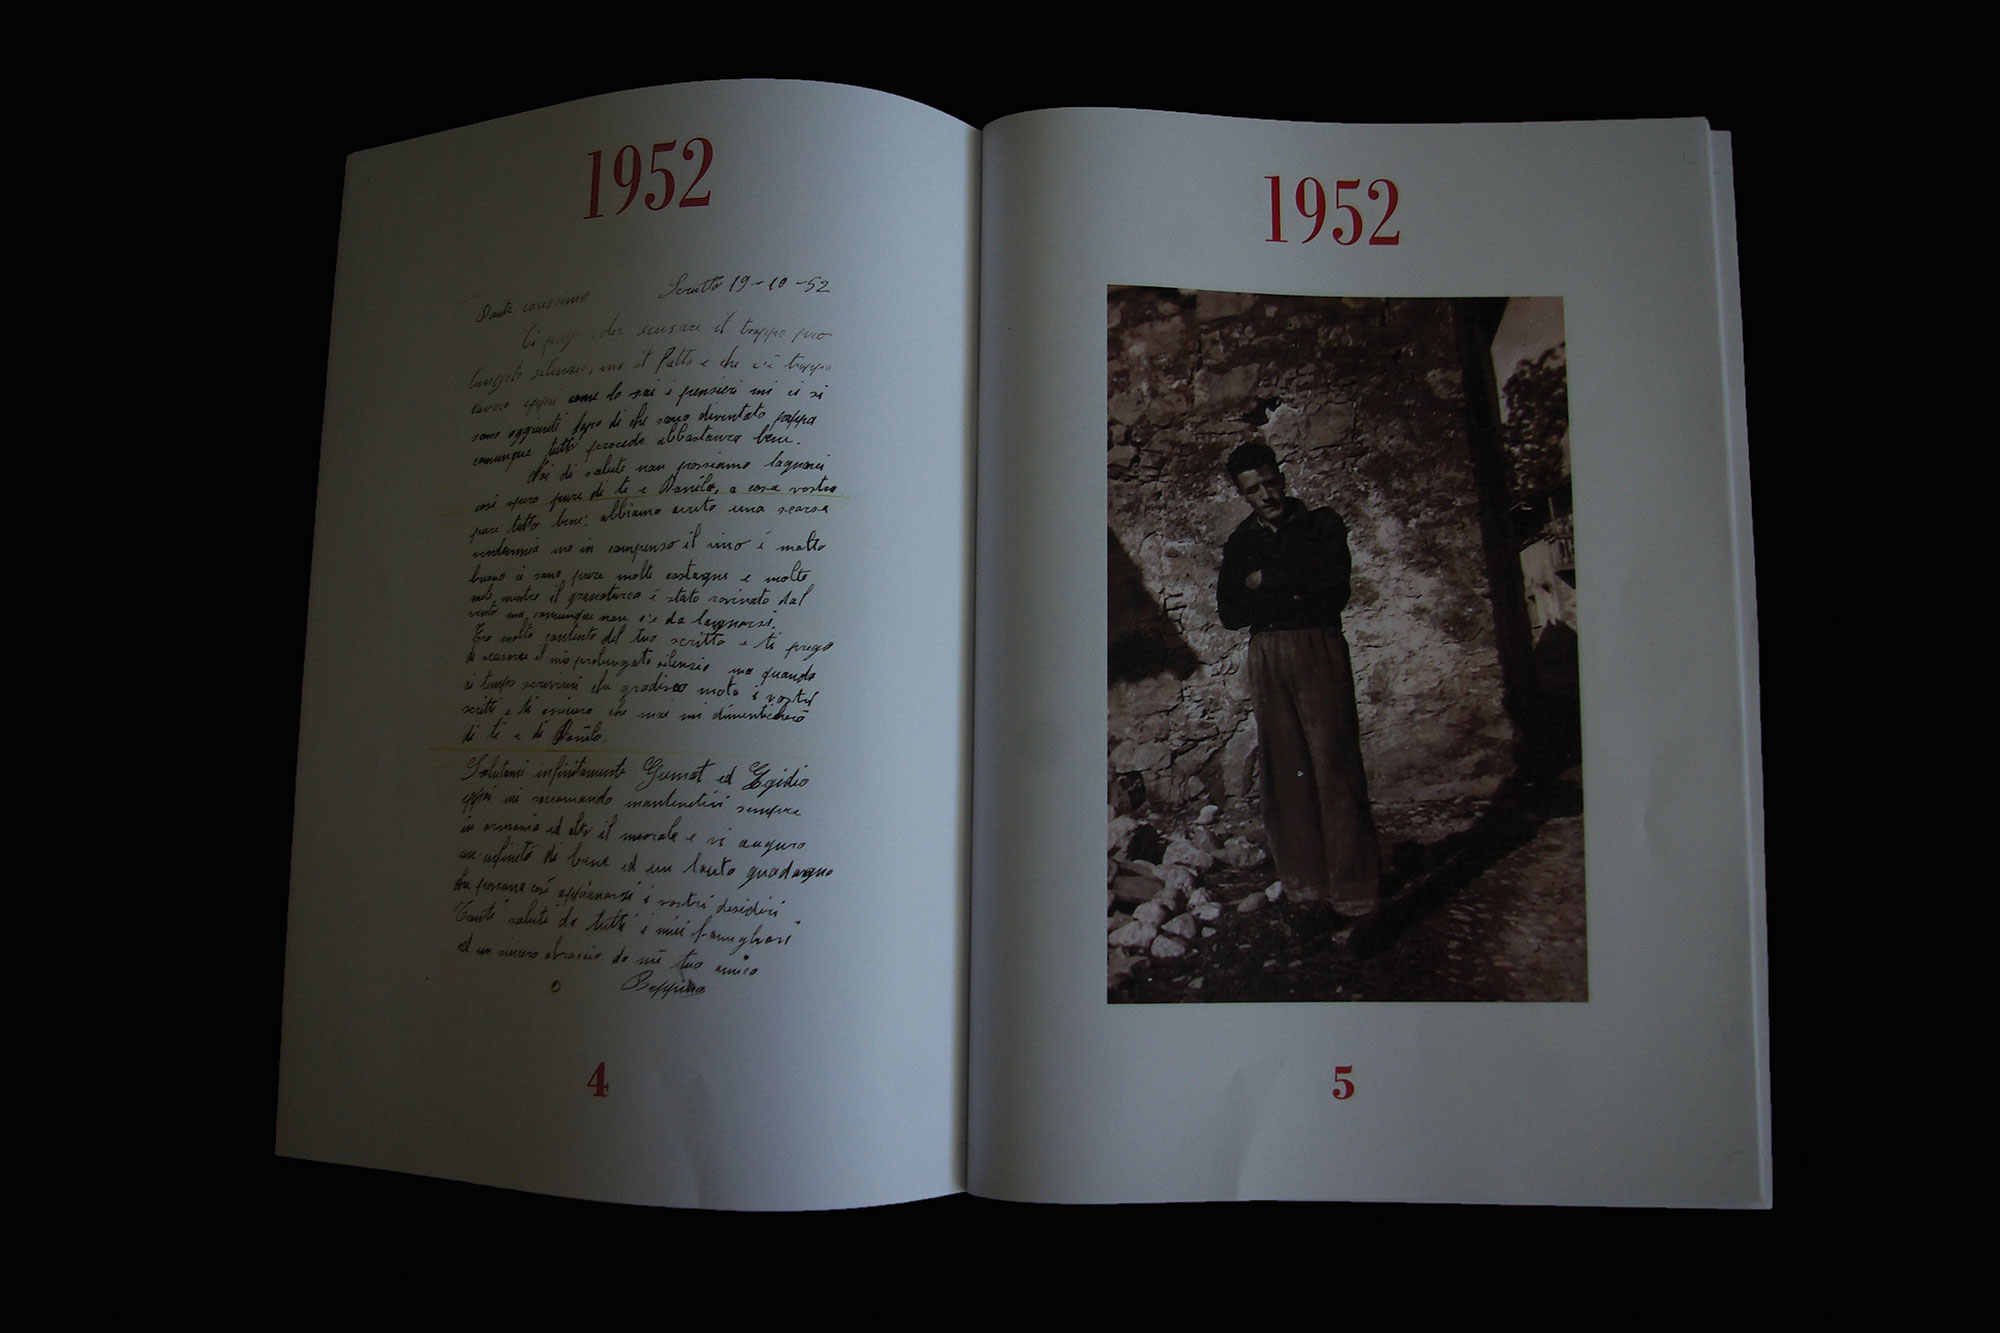 1952
Scrutto 19-10-52
Dante carissimo
Ti prego di scusare il troppo pro
lungato silenzio, ma il fatto e che c'è troppo
lavoro eppoi come lo sai i pensieri mi ci si
sono aggiunti dopo di che sono diventato pappa
comunque tutto procede abbastanza bene.
Noi di salute non possiamo lagnarci
così spero pure di te e Danilo, a casa vostra
pure tutto bene; abbiamo avuto una scarsa
vendemmia ma in compenso il vino é molto
buono ci sono pure molte castagne e molte
mele mentre il granoturco é stato rovinato dal
vento ma comunque non c'e da lagnarsi.
Ero molto contento del tuo scritto e ti prego
di scusare il mio prolungato silenzio ma quando
ai tempo scrivimi che gradisco molto i vostri
scritti e ti assicuro che mai mi dimenticherò
di té e di Danilo.
Salutami infinitamente Gumat ed Egidio
eppoi mi raccomando mantenetevi sempre
in armonia ed alto il morale e vi auguro
un infinità di bene ed un lauto guadagno
che possano così appianarsi i vostri desideri
Tanti saluti da tutti i miei famigliari
ed un sincero abraccio da mé tuo amico
Beppino
4
1952
5